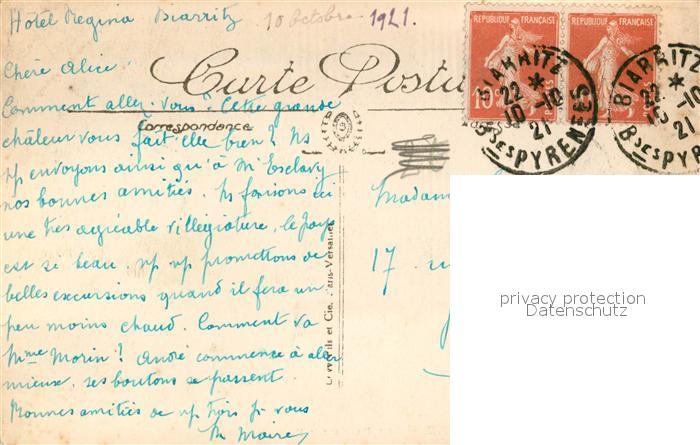 Hôtel Regina Biarritz 10 octobre 1921.
REPUBLIQUE FRANÇAISE REPUBLIQUE FRANÇAISE
10c
BIARRITZ * 22 -10 10 21 BSES PYRENEES
BIARRITZ * 22 -10 10 21 BSES PYRENEES
Chère Alice
Carte Postale
Comment allez-vous? Cette grande
Correspondance
châleur vous fait elle bien? Ns
vs envoyons ainsi qu'à Mr Esclavy
nos bonnes amitiés. Ns faisons ici
une très agréable villégiature, le pays
est si beau, ns ns promettons de
belles excursions quand il fera un
peu moins chaud. Comment va
Mme Morin? André commence à aller
mieux, ses boutons se passent.
Bonnes amitiés de ns trois pr vous
M Moire
Madame
17
Paris-Versailles
privacy protection
Datenschutz